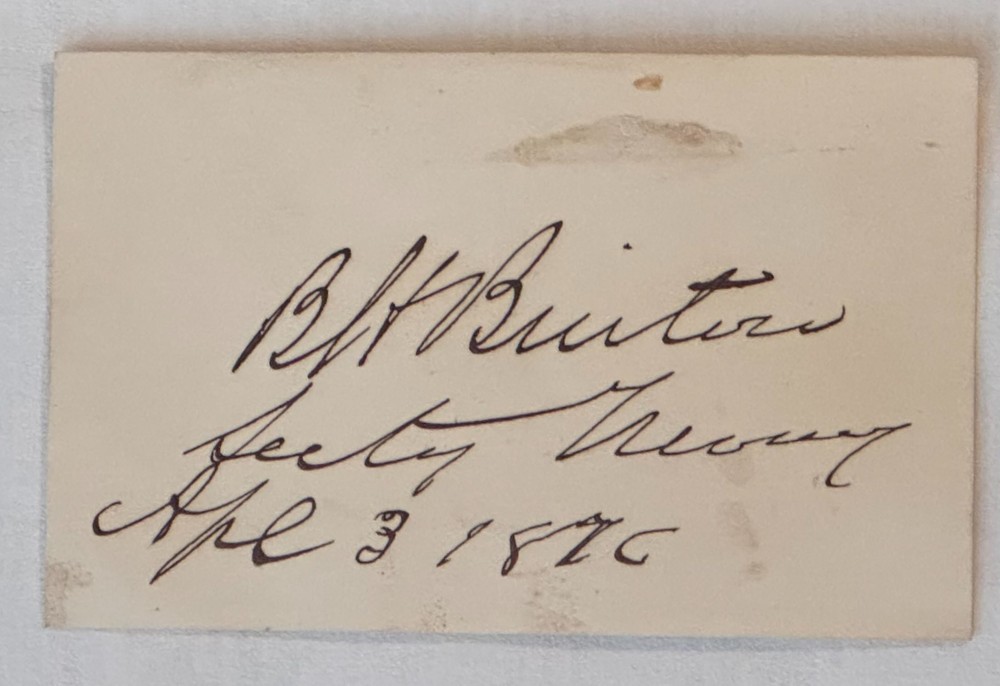 BH Bristow
Secty Treasury
Apl 3 1876